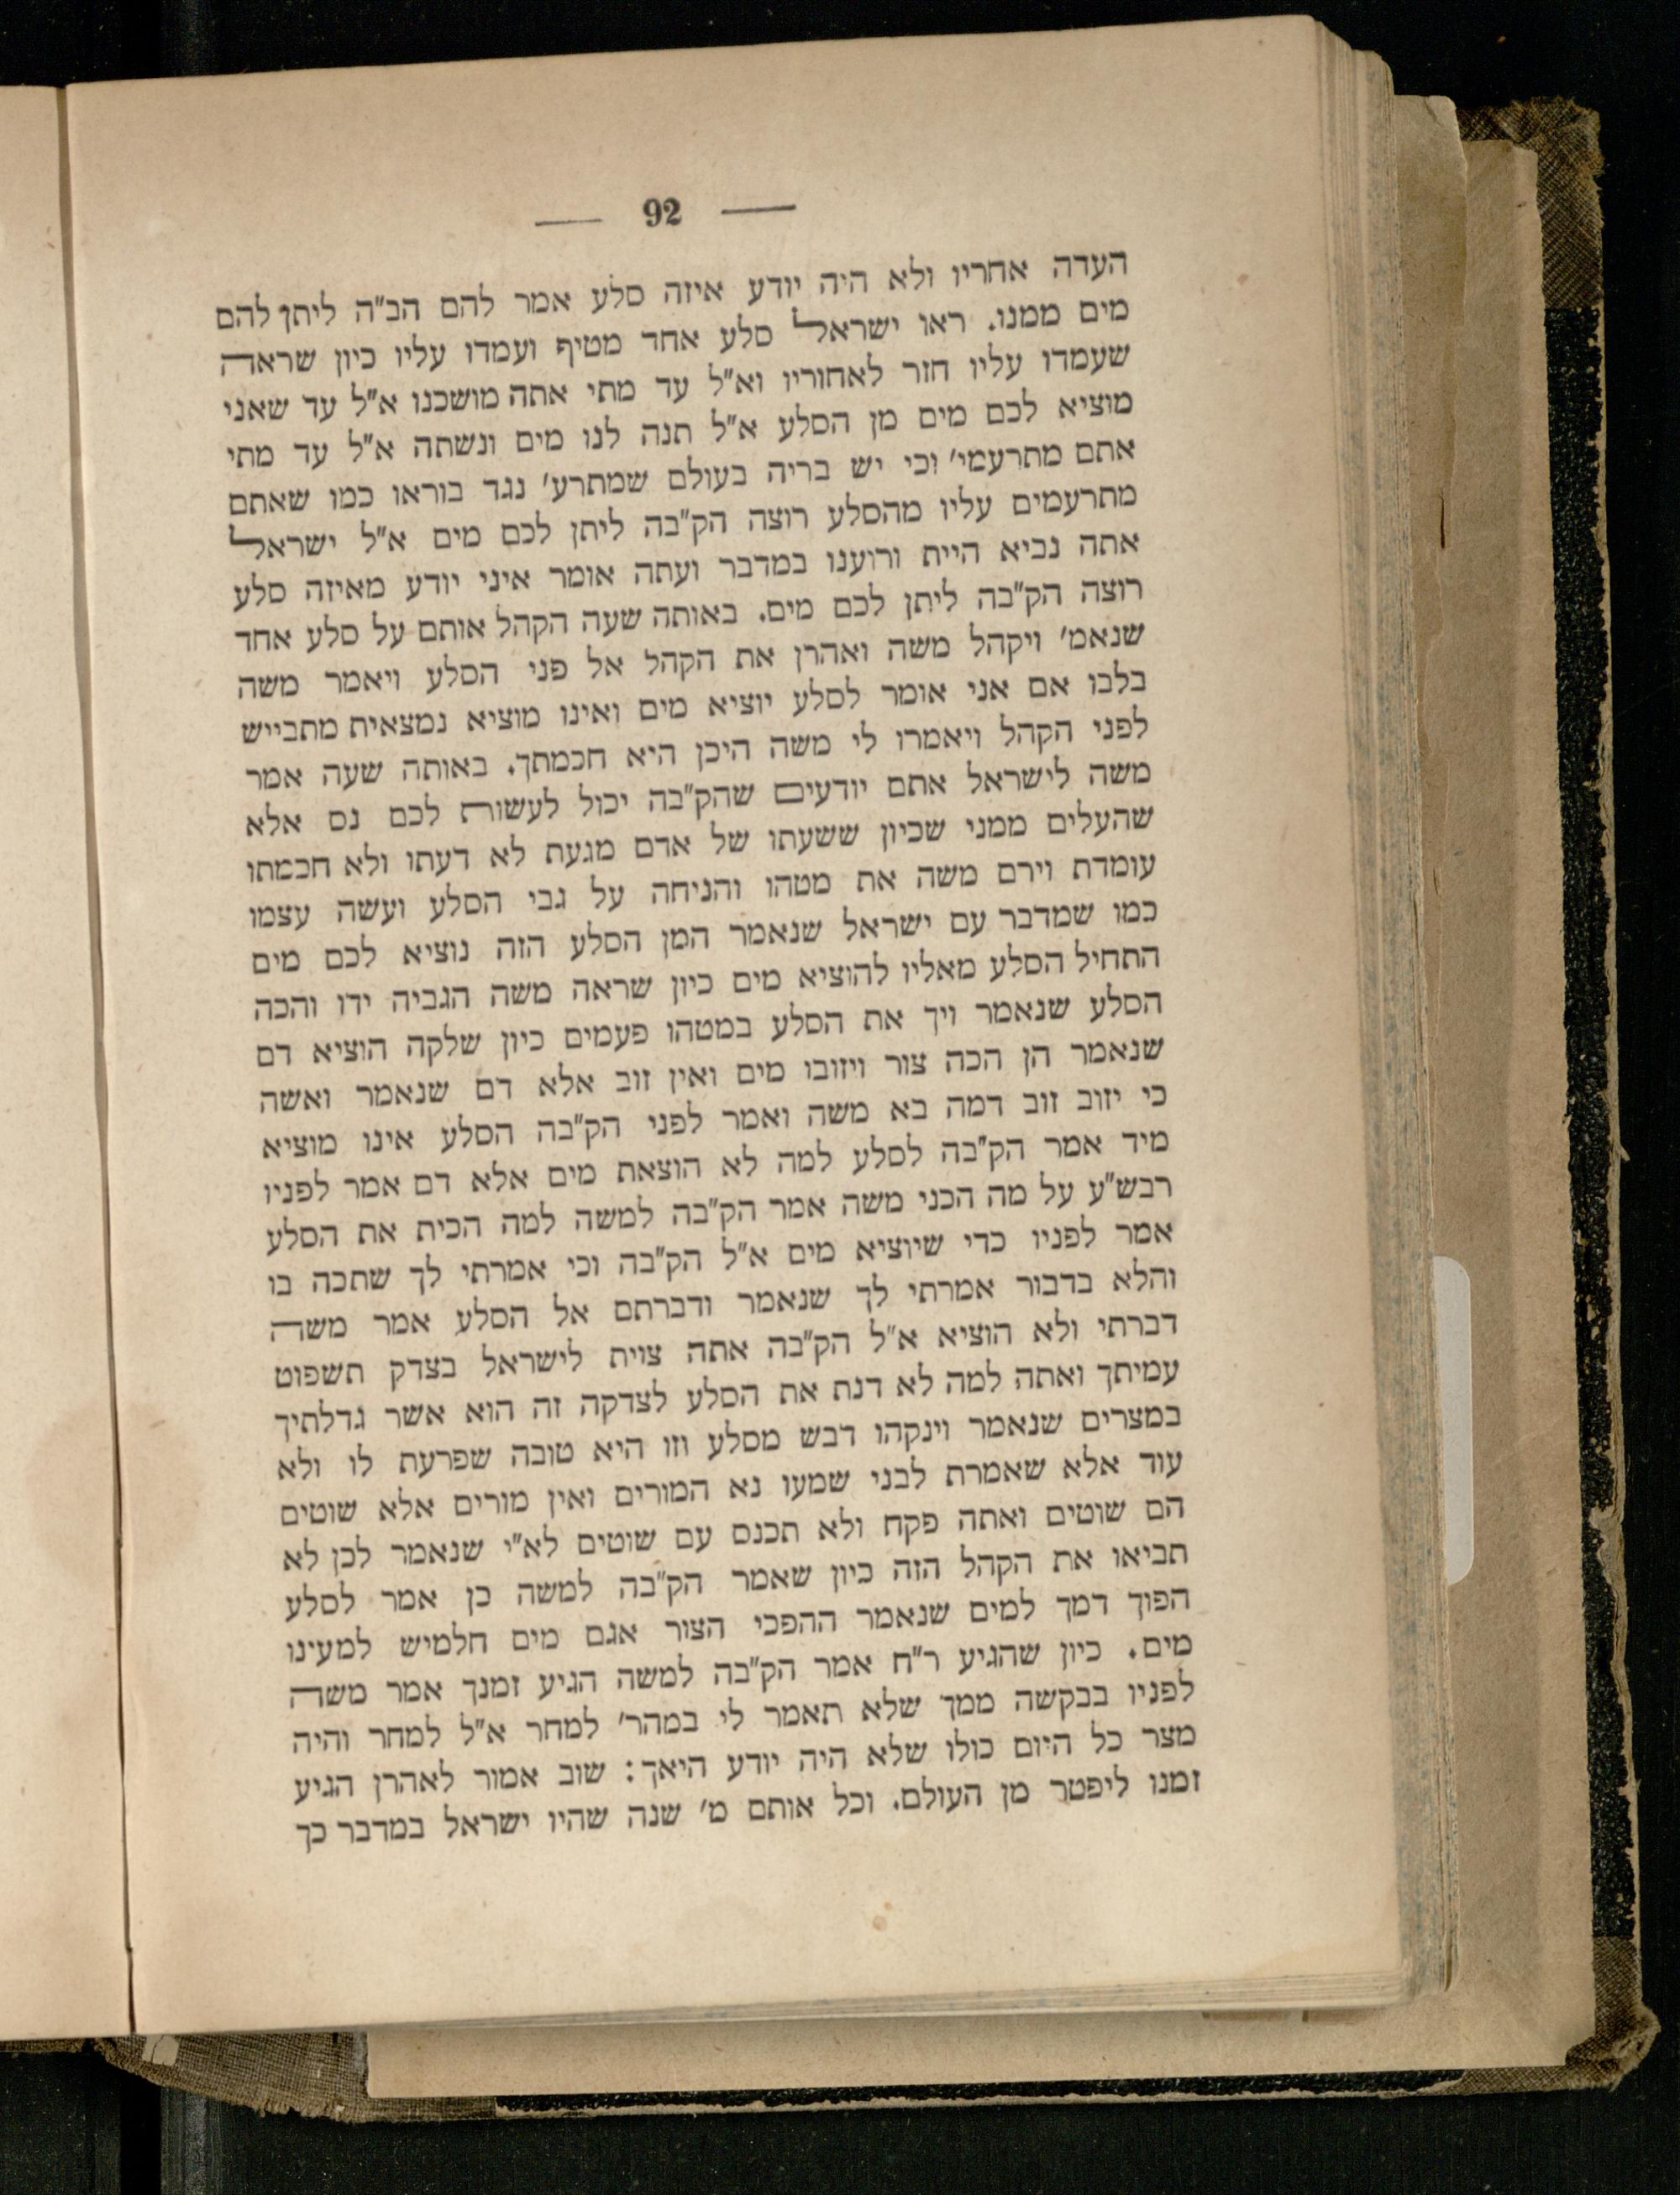 — 92 —
העדה אחריו ולא היה יודע איזה סלע אמר להם הב"ה ליתן להם
מים ממנו. ראו ישראל סלע אחד מטיף ועמדו עליו כיון שראה
שעמדו עליו חזר לאחוריו וא"ל עד מתי אתה מושכנו א"ל עד שאני
מוציא לכם מים מן הסלע א"ל תנה לנו מים ונשתה א"ל עד מתי
אתם מתרעמי' וכי יש בריה בעולם שמתרע' נגד בוראו כמו שאתם
מתרעמים עליו מהסלע רוצה הק"בה ליתן לכם מים א"ל ישראל
אתה נביא היית ורוענו במדבר ועתה אומר איני יודע מאיזה סלע
רוצה הק"בה ליתן לכם מים. באותה שעה הקהל אותם על סלע אחד
שנאמ' ויקהל משה ואהרן את הקהל אל פני הסלע ויאמר משה
בלבו אם אני אומר לסלע יוציא מים ואינו מוציא נמצאית מתבייש
לפני הקהל ויאמרו לי משה היכן היא חכמתך. באותה שעה אמר
משה לישראל אתם יודעים שהק"בה יכול לעשות לכם נס אלא
שהעלים ממני שכיון ששעתו של אדם מגעת לא דעתו ולא חכמתו
עומדת וירם משה את מטהו והניחה על גבי הסלע ועשה עצמו
כמו שמדבר עם ישראל שנאמר המן הסלע הזה נוציא לכם מים
התחיל הסלע מאליו להוציא מים כיון שראה משה הגביה ידו והכה
הסלע שנאמר ויך את הסלע במטהו פעמים כיון שלקה הוציא דם
שנאמר הן הכה צור ויזובו מים ואין זוב אלא דם שנאמר ואשה
כי יזוב זוב דמה בא משה ואמר לפני הק"בה הסלע אינו מוציא
מיד אמר הק"בה לסלע למה לא הוצאת מים אלא דם אמר לפניו
רבש"ע על מה הכני משה אמר הק"בה למשה למה הכית את הסלע
אמר לפניו כדי שיוציא מים א"ל הק"בה וכי אמרתי לך שתכה בו
והלא בדבור אמרתי לך שנאמר ודברתם אל הסלע אמר משה
דברתי ולא הוציא א"ל הק"בה אתה צוית לישראל בצדק תשפוט
עמיתך ואתה למה לא דנת את הסלע לצדקה זה הוא אשר גדלתיך
במצרים שנאמר וינקהו דבש מסלע וזו היא טובה שפרעת לו ולא
עוד אלא שאמרת לבני שמעו נא המורים ואין מורים אלא שוטים
הם שוטים ואתה פקח ולא תכנס עם שוטים לא"י שנאמר לכן לא
תביאו את הקהל הזה כיון שאמר הק"בה למשה כן אמר לסלע
הפוך דמך למים שנאמר ההפכי הצור אגם מים חלמיש למעינו
מים. כיון שהגיע ר"ח אמר הק"בה למשה הגיע זמנך אמר משה
לפניו בבקשה ממך שלא תאמר לי במהר' למחר א"ל למחר והיה
מצר כל היום כולו שלא היה יודע היאך: שוב אמור לאהרן הגיע
זמנו ליפטר מן העולם. וכל אותם מ' שנה שהיו ישראל במדבר כך